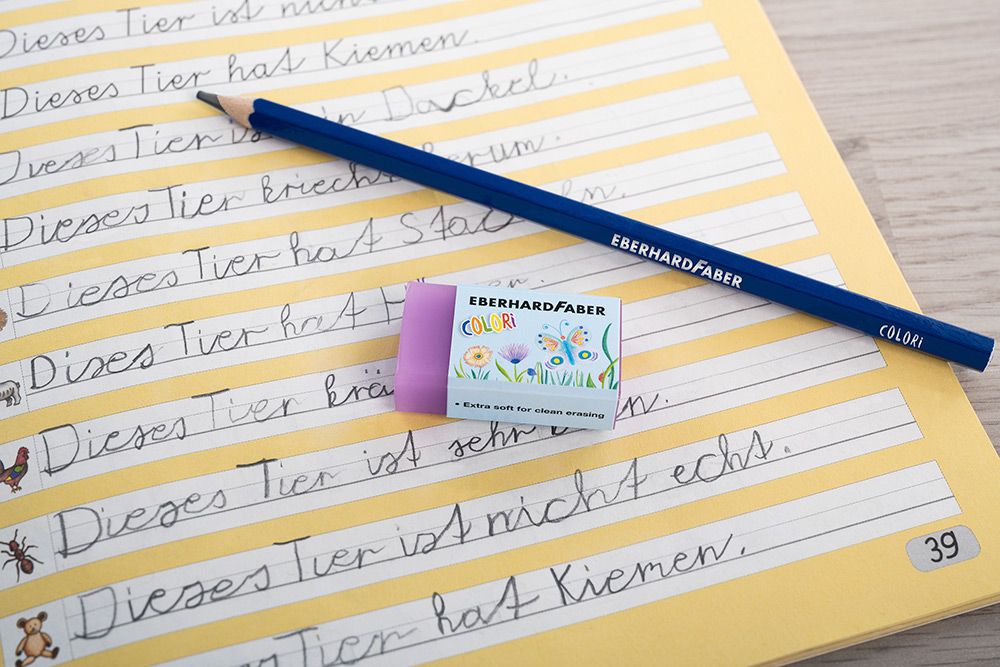 Dieses Tier ist nicht
Dieses Tier hat Kiemen.
Dieses Tier in Dackel.
Dieses Tier kriecht herum.
Dieses Tier hat
Dises Tier hat
Dieses Tier
Dieses Tier ist sehr
Dieses Tier ist nicht echt.
Tier hat Kiemen.
EBERHARDFABER COLORi
EBERHARDFABER
COLORi
• Extra soft for clean erasing
39